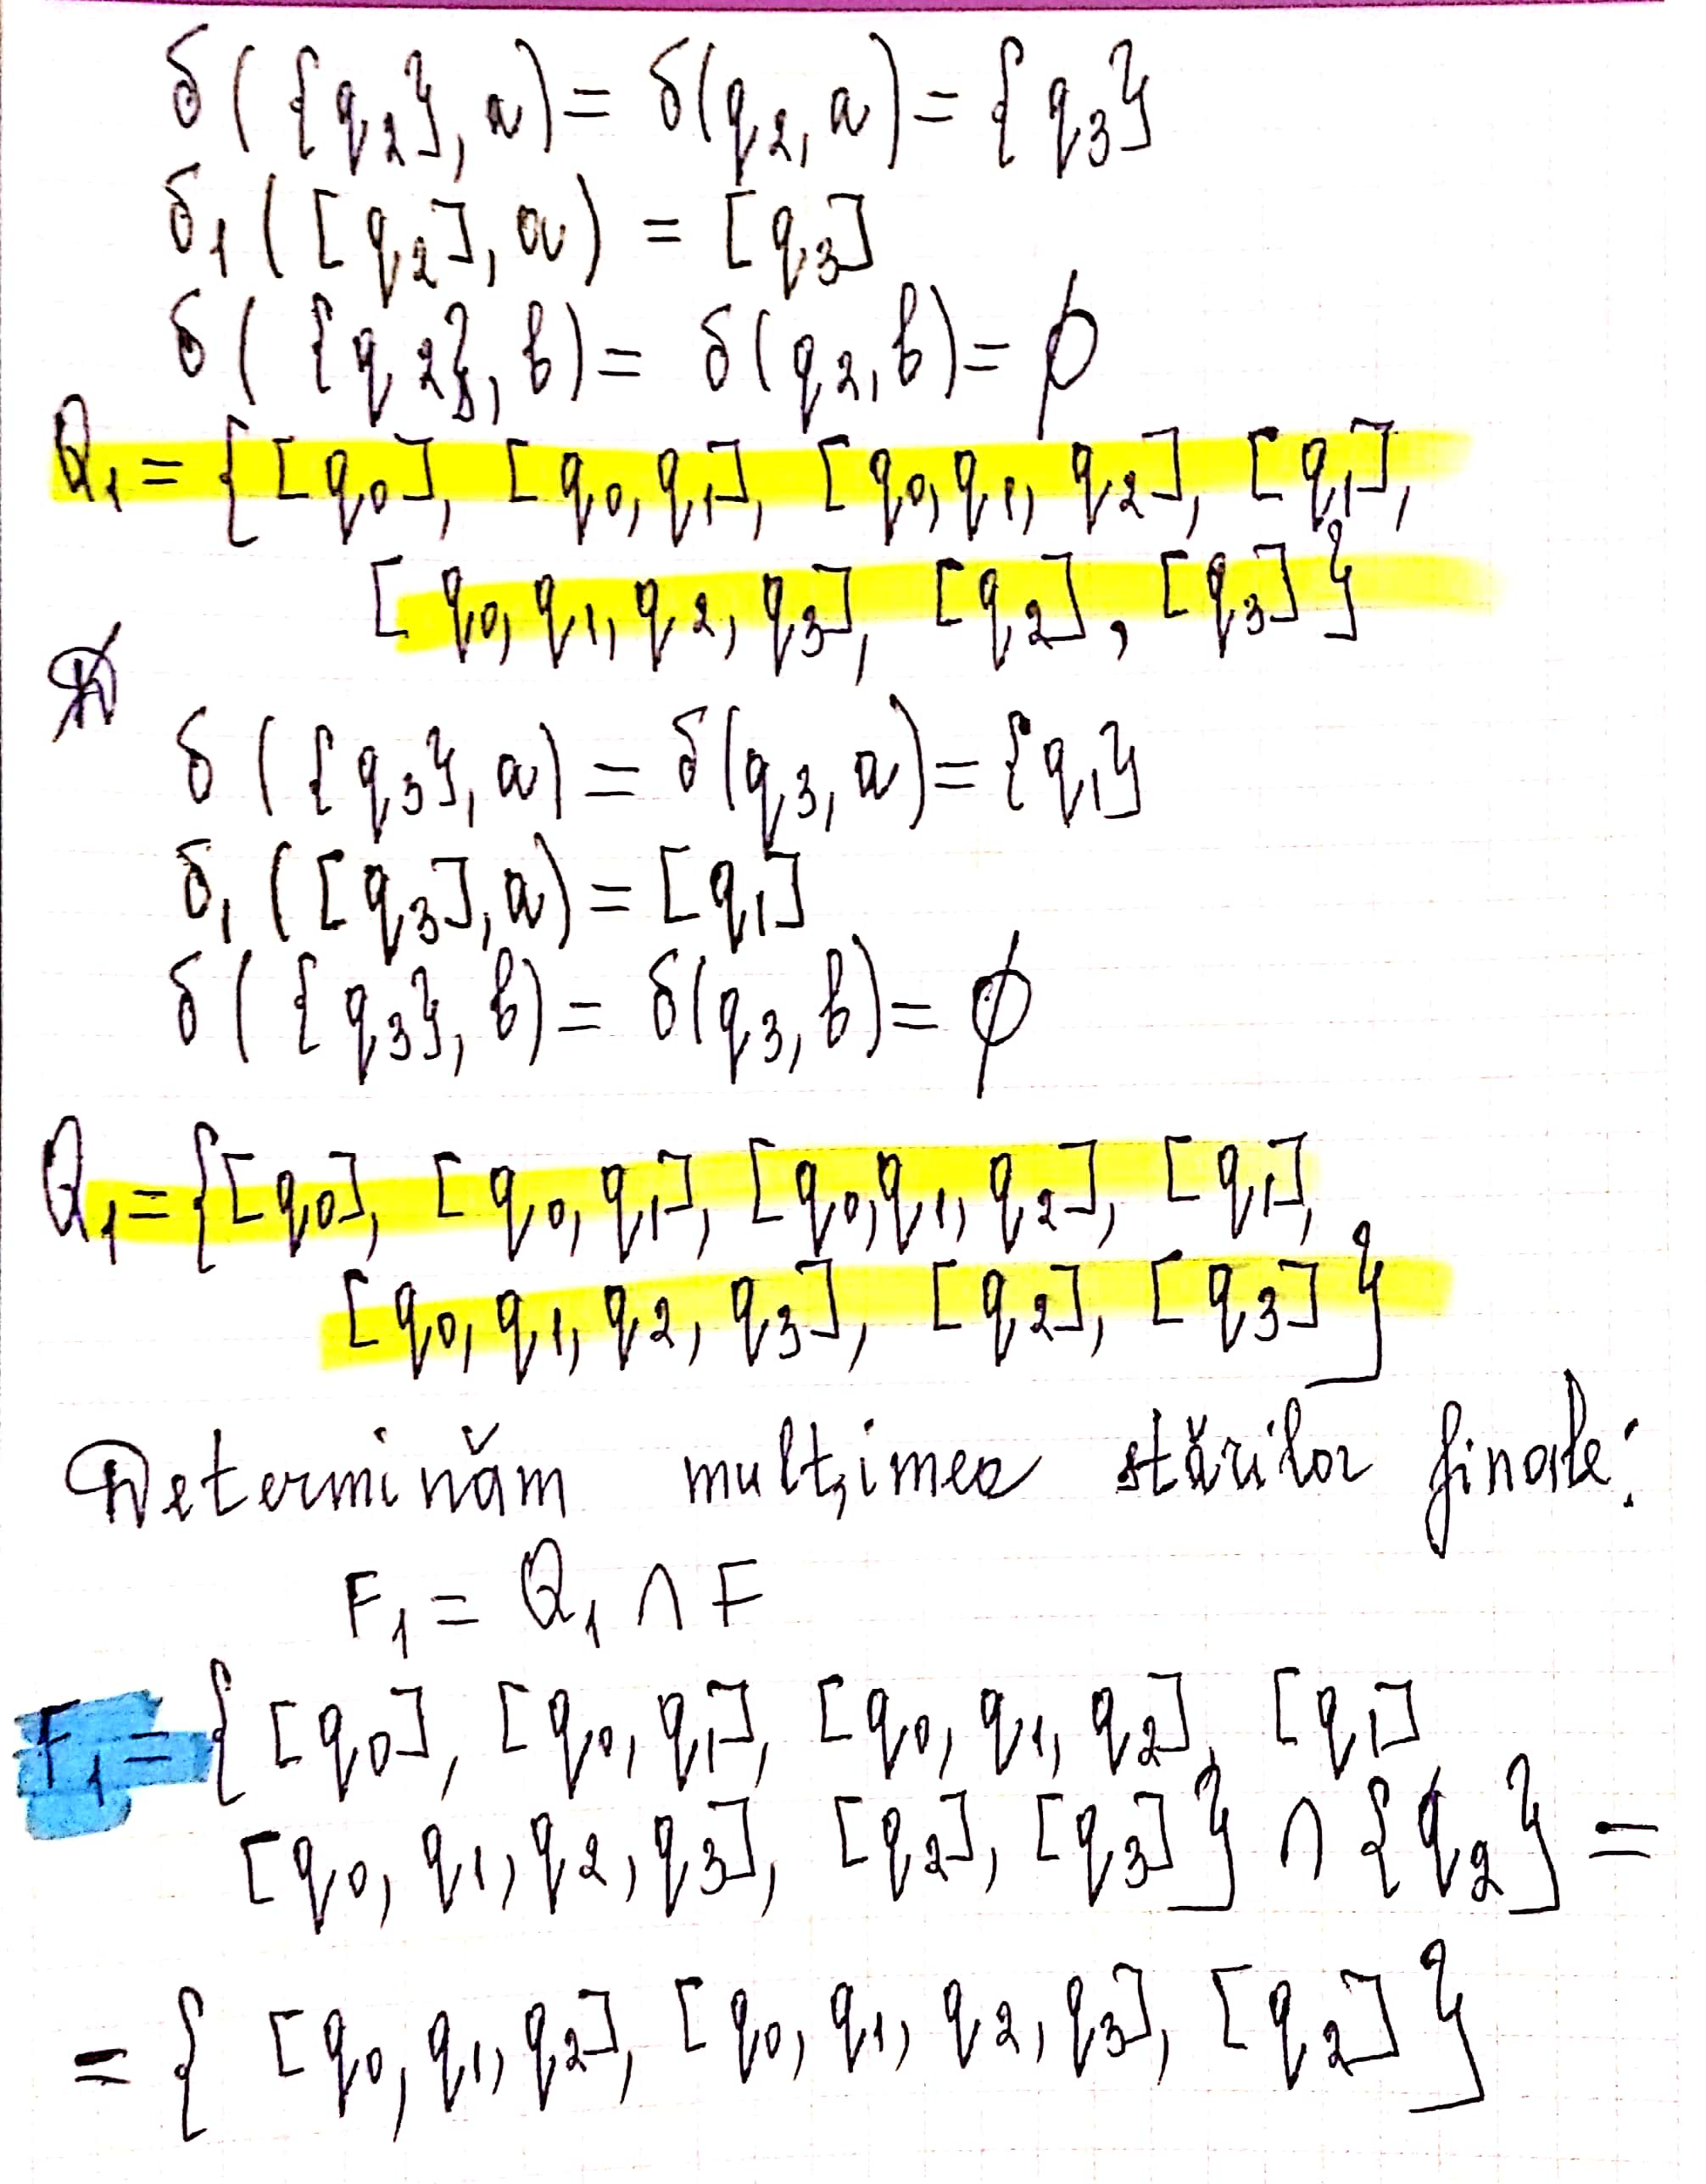 δ({q₂}, a) = δ(q₂, a) = {q₃}
δ₁([q₂], a) = [q₃]
δ({q₂}, b) = δ(q₂, b) = ∅
Q₁ = {[q₀], [q₀, q₁], [q₀, q₁, q₂], [q₁],
[q₀, q₁, q₂, q₃], [q₂], [q₃]}
δ({q₃}, a) = δ(q₃, a) = {q₁}
δ₁([q₃], a) = [q₁]
δ({q₃}, b) = δ(q₃, b) = ∅
Q₁ = {[q₀], [q₀, q₁], [q₀, q₁, q₂], [q₁],
[q₀, q₁, q₂, q₃], [q₂], [q₃]}
Determinăm mulțimea stărilor finale:
F₁ = Q₁ ∩ F
F₁ = {[q₀], [q₀, q₁], [q₀, q₁, q₂], [q₁]
[q₀, q₁, q₂, q₃], [q₂], [q₃]} ∩ {q₂} =
= { [q₀, q₁, q₂], [q₀, q₁, q₂, q₃], [q₂] }